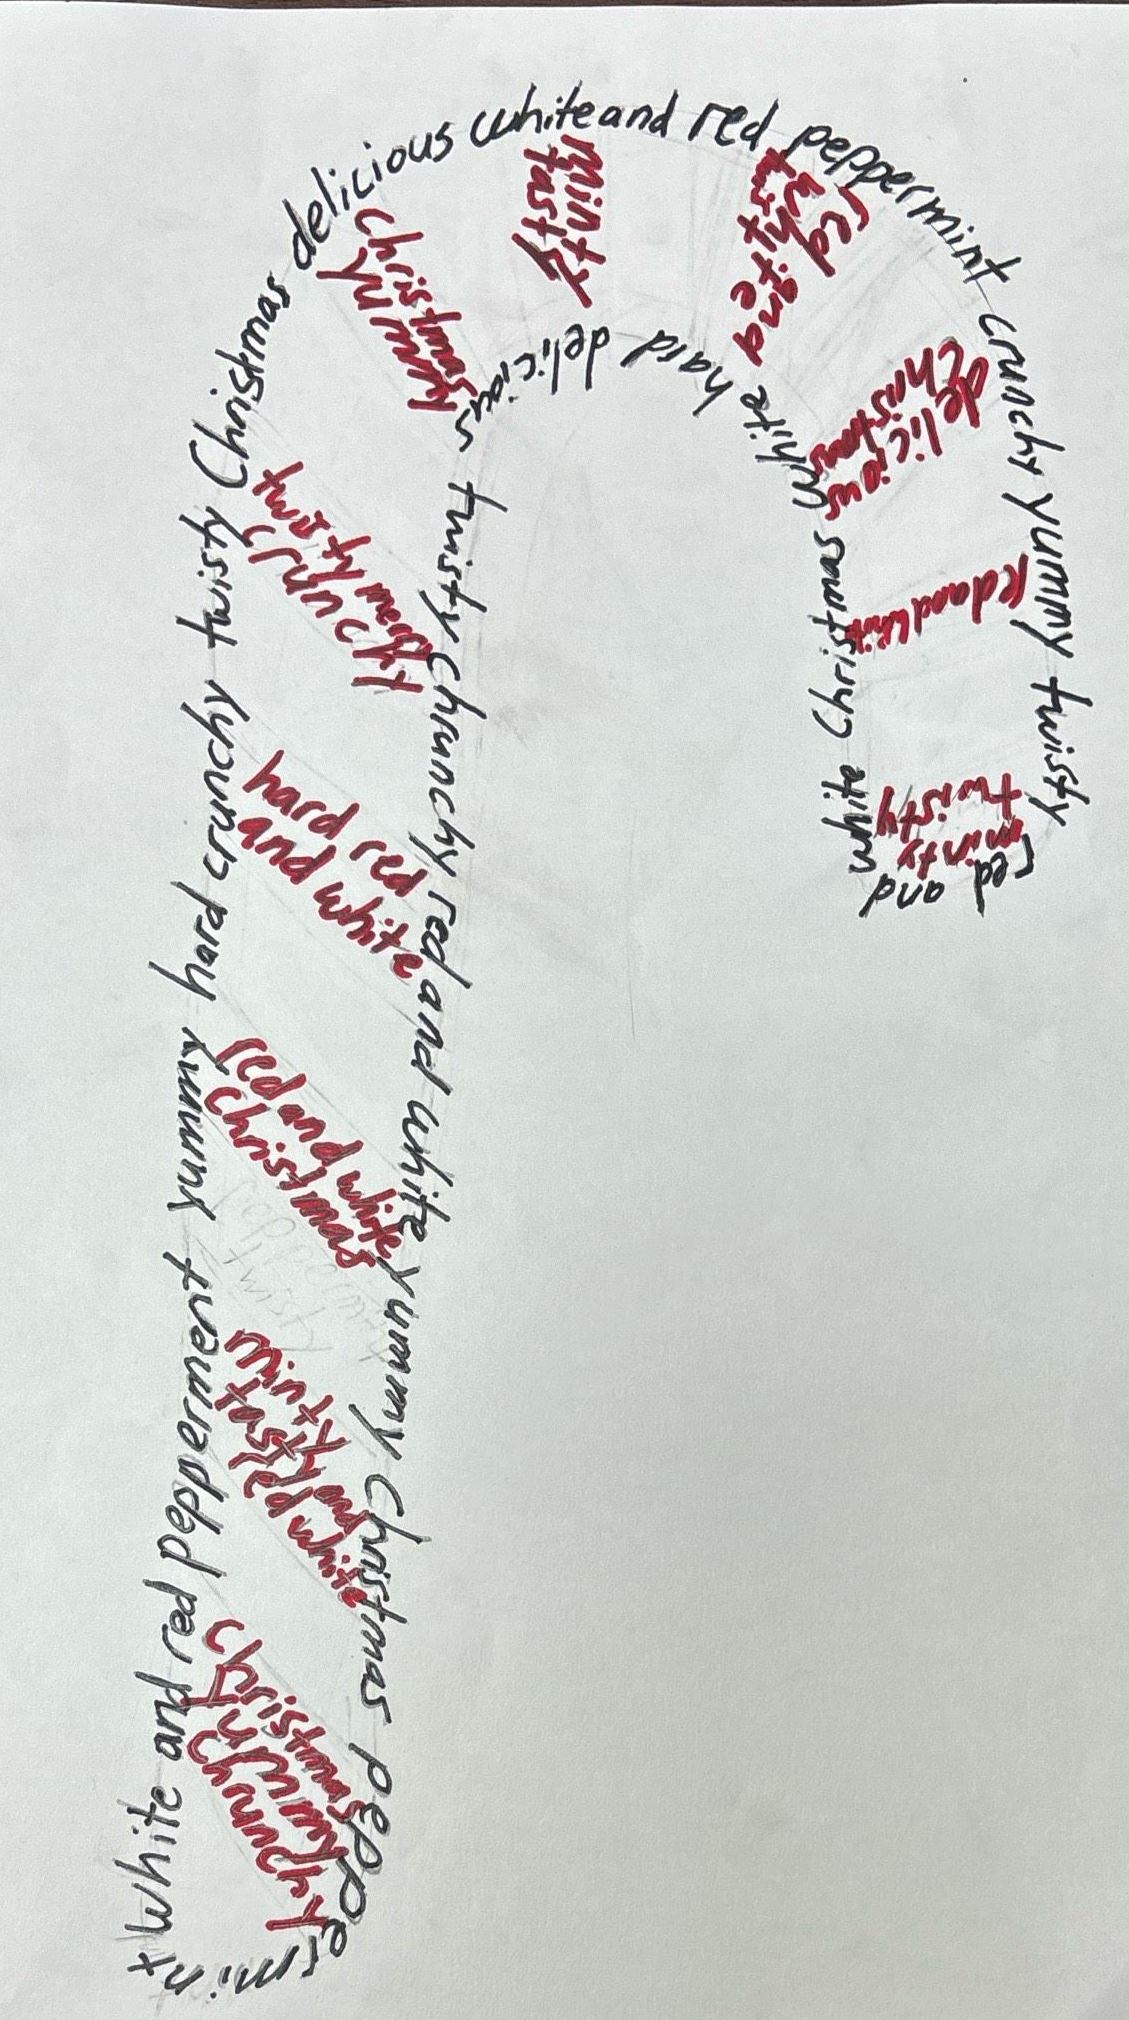 white and red pepperment yummy hard crunchy twisty Christmas delicious white and red peppermint crunchy yummy twisty
red and white Christmas white hard delicious
twisty chrunchy red and white yummy Christmas peppermint
minty
tasty
red and
white
twist
Christmas
yummy
delicious
Christmas
red and white
twisty
minty
twisty
crunchy
hard red
and white
red and white
Christmas
minty
tasty
red white
Christmas
yummy
chrunchy